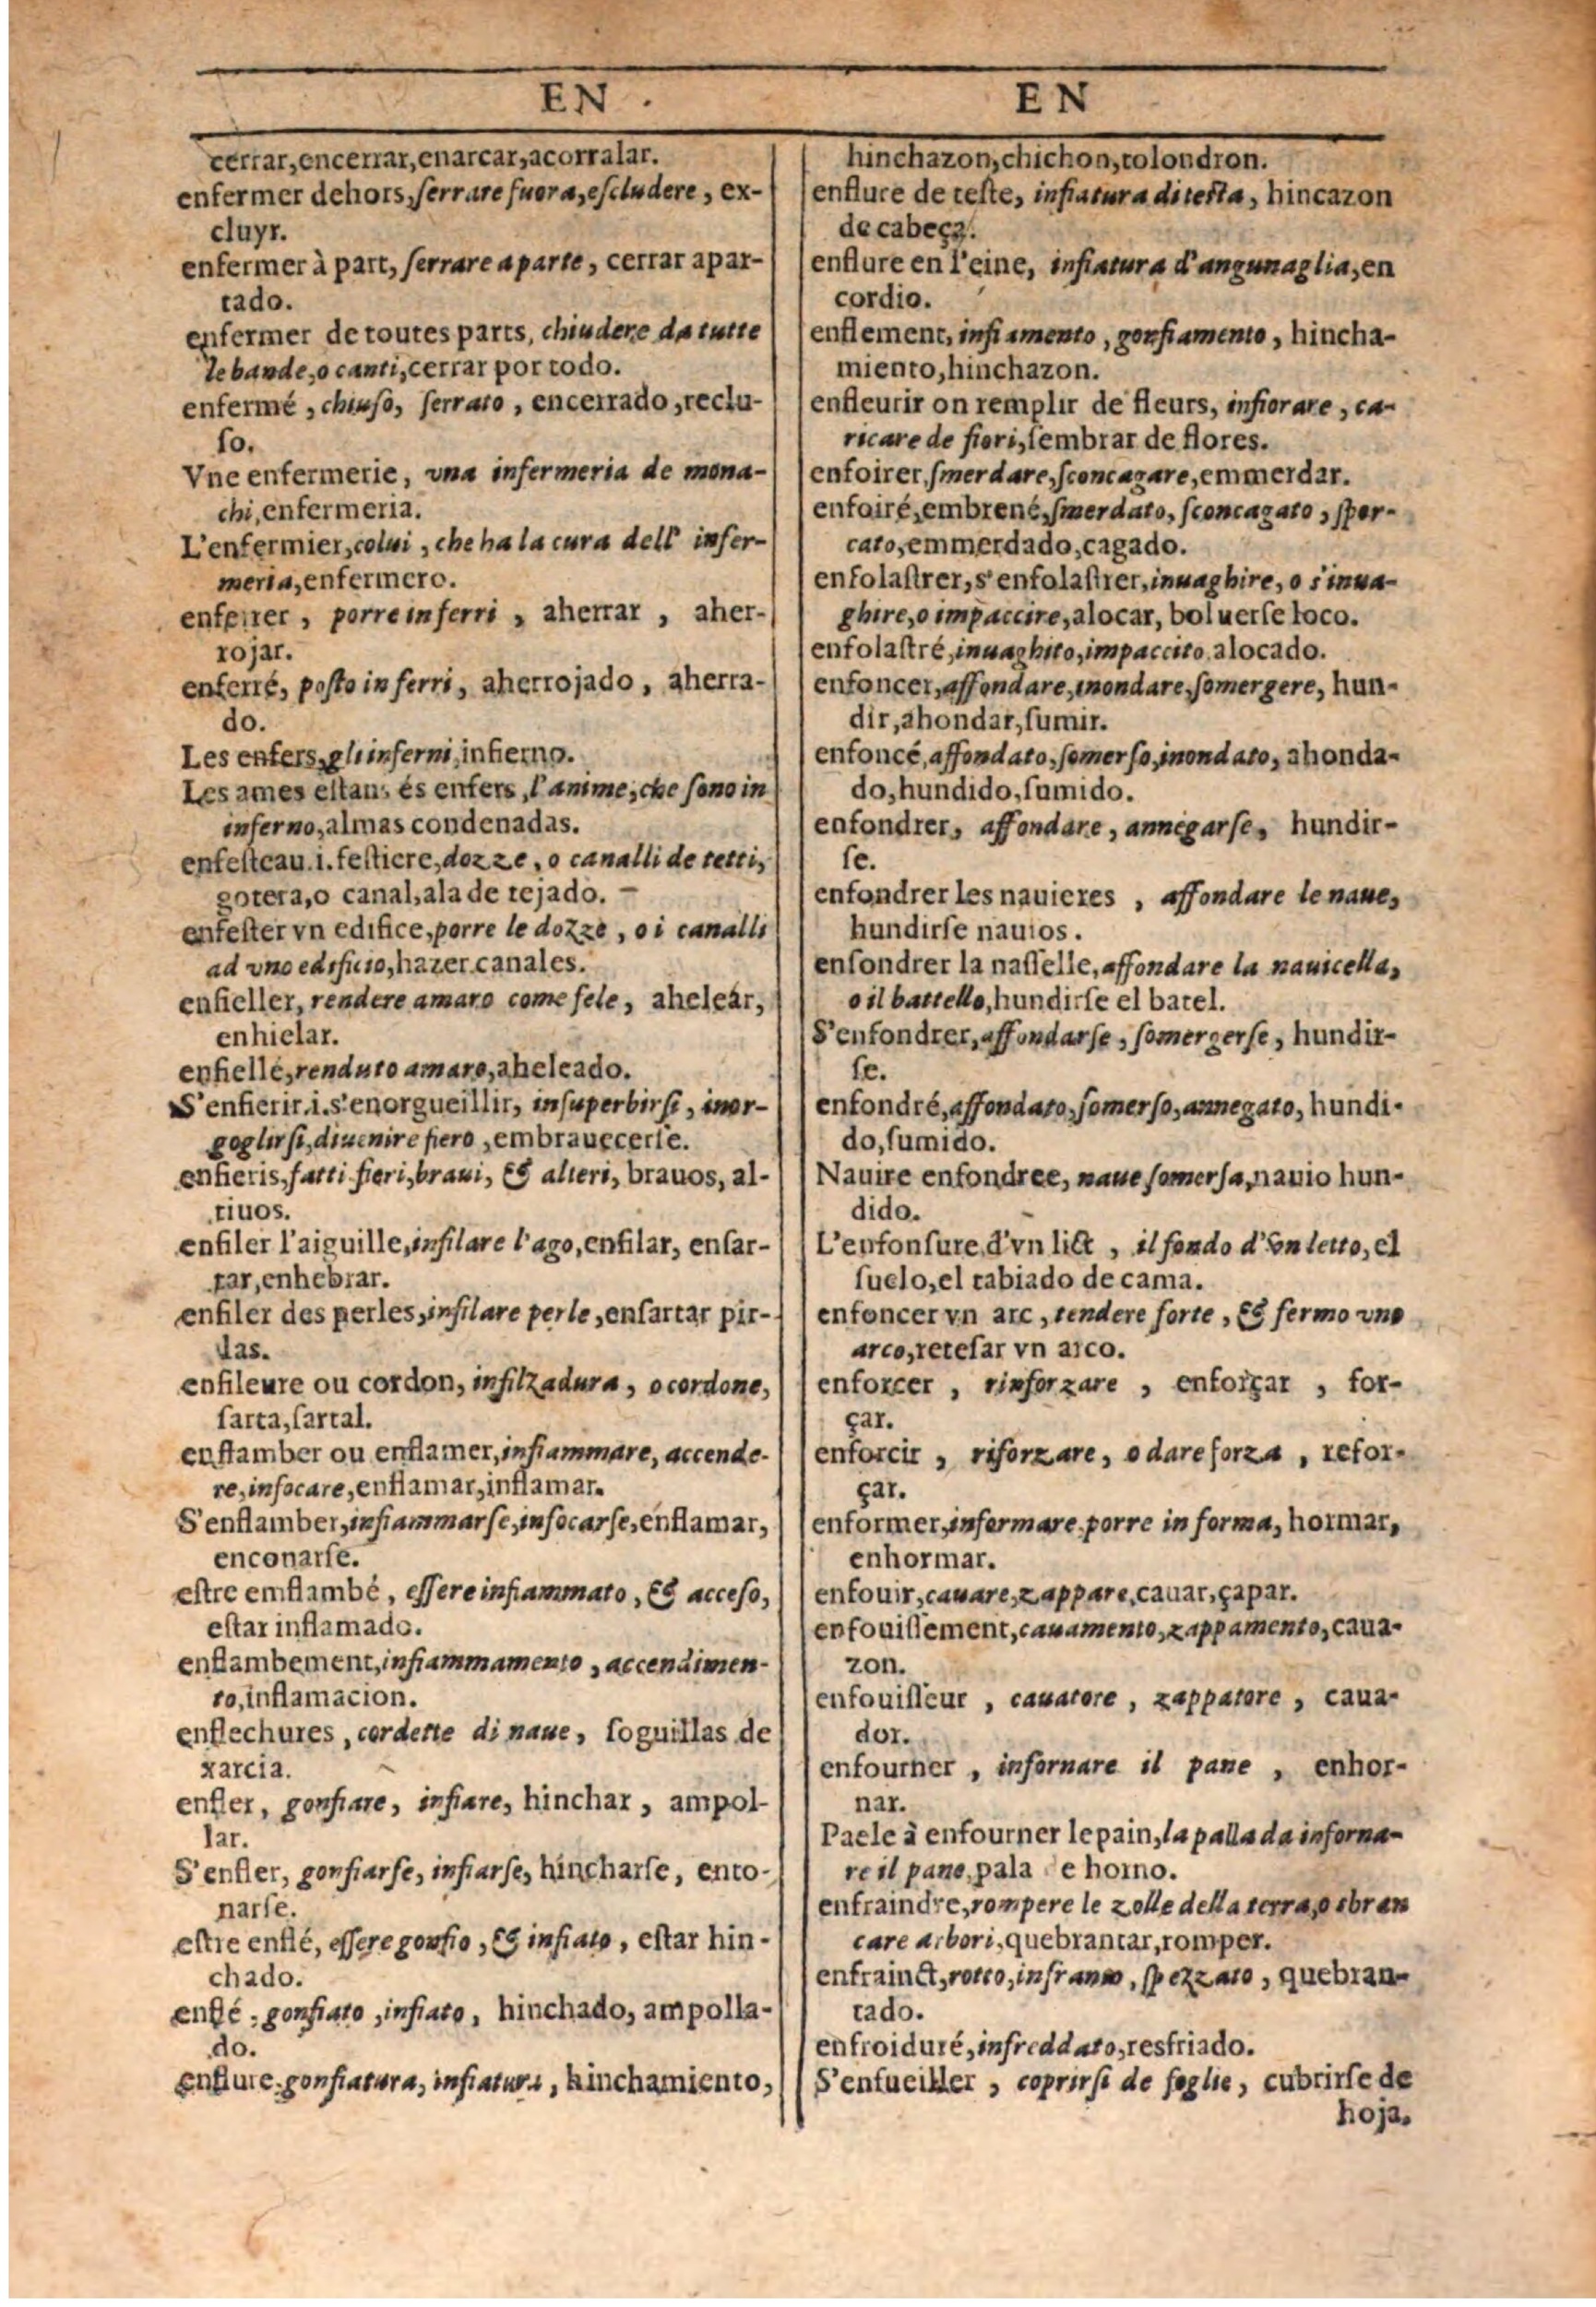 EN .
EN
cerrar,encerrar,enarcar,acorralar.
enfermer dehors,ſerrare fuora,eſcludere, ex-
cluyr.
enfermer à part, ſerrare a parte, cerrar apar-
tado.
enfermer de toutes parts, chiudere da tutte
le bande,o canti,cerrar por todo.
enfermé , chiuſo, ſerrato , encerrado ,reclu-
ſo.
Vne enfermerie, vna infermeria de mona-
chi,enfermeria.
L'enfermier,colui , che ha la cura dell' infer-
meria,enfermero.
enferrer , porre in ferri , aherrar , aher-
rojar.
enferré, poſto in ferri, aherrojado , aherra-
do.
Les enfers,gli inferni,infierno.
Les ames eſtans és enfers ,l'anime,che ſono in
inferno,almas condenadas.
enfeſteau.i.feſtiere,dozze, o canalli de tetti,
gotera,o canal,ala de tejado.
enfeſter vn edifice,porre le dozze , o i canalli
ad vno edificio,hazer canales.
enfieller, rendere amaro come fele, ahelear,
enhielar.
enfiellé,renduto amaro,aheleado.
S'enfierir.i.s'enorgueillir, inſuperbirſi, inor-
goglirſi,diuenire fiero ,embrauecerſe.
enfieris,fatti fieri,braui, & alteri, brauos, al-
tiuos.
enfiler l'aiguille,infilare l'ago,enfilar, enſar-
tar,enhebrar.
enfiler des perles,infilare perle,enſartar pir-
las.
enfileure ou cordon, infilzadura, o cordone,
ſarta,ſartal.
enflamber ou enflamer,infiammare, accende-
re,infocare,enflamar,inflamar.
S'enflamber,infiammarſe,infocarſe,enflamar,
enconarſe.
eſtre emflambé, eſſere infiammato, & acceſo,
eſtar inflamado.
enflambement,infiammamento ,accendimen-
to,inflamacion.
enflechures , cordette di naue, ſoguillas de
xarcia.
enfler, gonfiare, infiare, hinchar , ampol-
lar.
S'enfler, gonfiarſe, infiarſe, hincharſe, ento-
narſe.
eſtre enflé, eſſere gonfio ,& infiato , eſtar hin-
chado.
enflé , gonfiato ,infiato, hinchado, ampolla-
do.
enflure,gonfiatura, infiatura , hinchamiento,
hinchazon,chichon,tolondron.
enflure de teſte, infiatura di teſta, hincazon
de cabeça.
enflure en l'eine, infiatura d'angunaglia,en
cordio.
enflement, infiamento , gonfiamento , hincha-
miento,hinchazon.
enfleurir on remplir de fleurs, infiorare , ca-
ricare de fiori,ſembrar de flores.
enfoirer,ſmerdare,ſconcagare,emmerdar.
enfoiré,embrené,ſmerdato, ſconcagato , ſpor-
cato,emmerdado,cagado.
enfolaſtrer,s'enfolaſtrer,inuaghire, o s'inua-
ghire,o impaccire,alocar, boluerſe loco.
enfolaſtré,inuaghito,impaccito,alocado.
enfoncer,affondare,inondare,ſomergere, hun-
dir,ahondar,ſumir.
enfoncé,affondato,ſomerſo,inondato, ahonda-
do,hundido,ſumido.
enfondrer, affondare, annegarſe, hundir-
ſe.
enfondrer les nauieres , affondare le naue,
hundirſe nauios.
enfondrer la naſſelle,affondare la nauicella,
o il battello,hundirſe el batel.
S'enfondrer,affondarſe , ſomergerſe , hundir-
ſe.
enfondré,affondato,ſomerſo,annegato, hundi-
do,ſumido.
Nauire enfondree, naue ſomerſa,nauio hun-
dido.
L'enfonſure d'vn lict , il fondo d'vn letto, el
ſuelo,el tabiado de cama.
enfoncer vn arc , tendere forte , & fermo vno
arco,reteſar vn arco.
enforcer , rinforzare , enforçar , for-
çar.
enforcir , riforzare, o dare forza , refor-
çar.
enformer,informare,porre in forma, hormar,
enhormar.
enfouir,cauare,zappare,cauar,çapar.
enfouiſſement,cauamento,zappamento, caua-
zon.
enfouiſſeur , cauatore , zappatore , caua-
dor.
enfourner , infornare il pane , enhor-
nar.
Paele à enfourner le pain,la palla da inforna-
re il pane,pala de horno.
enfraindre,rompere le zolle della terra,o sbran
care arbori,quebrantar,romper.
enfrainct,rotto,infranto, ſpezzato , quebran-
tado.
enfroiduré,infreddato,resfriado.
S'enfueiller , coprirſi de foglie, cubrirſe de
hoja.